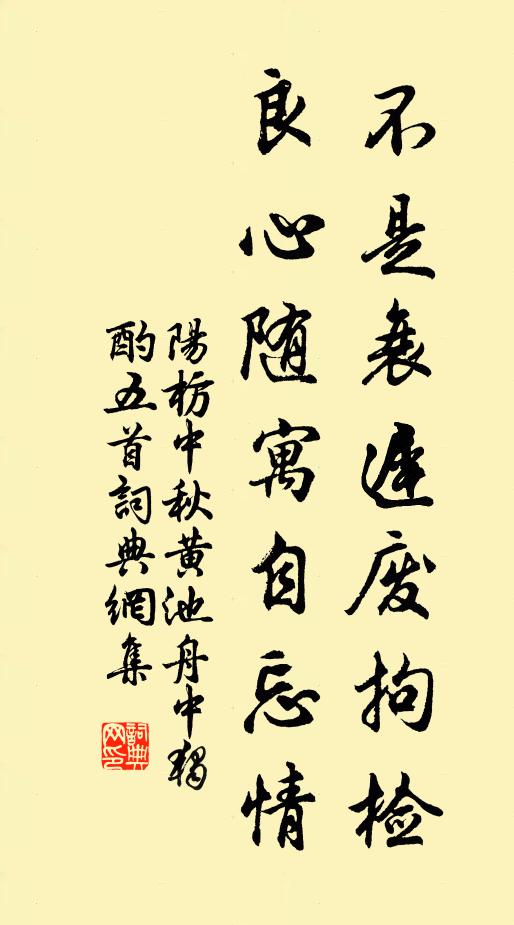 不是衰遲废拘检
良心随寓自忘情
陽枋中秋黄池舟中獨
酌五首詞典網集
詞典网印